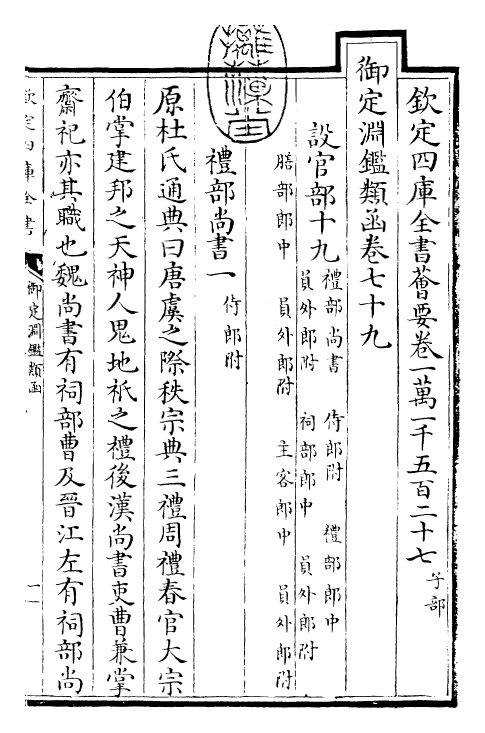 欽定四庫全書薈要卷一萬一千五百二十七 子部
御定淵鑑類函卷七十九
設官部十九 禮部尚書 侍郎附 禮部郎中
員外郎附 祠部郎中 員外郎附
膳部郎中 員外郎附 主客郎中 員外郎附
禮部尚書一 侍郎附
原杜氏通典曰唐虞之際秩宗典三禮周禮春官大宗
伯掌建邦之天神人鬼地祇之禮後漢尚書吏曹兼掌
齋祀亦其職也魏尚書有祠部曹及晉江左有祠部尚
欽定四庫全書
御定淵鑑類函
一